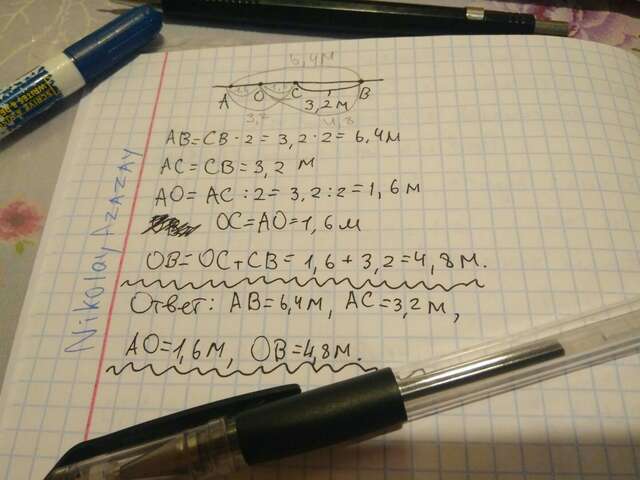 5,4м
A O C B
3,2м
3,2 4,8
AB=CB·2=3,2·2=6,4м
AC=CB=3,2 м
AO=AC:2=3,2:2=1,6м
OC=AO=1,6м
OB=OC+CB=1,6+3,2=4,8м.
Ответ: AB=6,4м, AC=3,2м,
AO=1,6м, OB=4,8м.
Nikolay AZAZAY